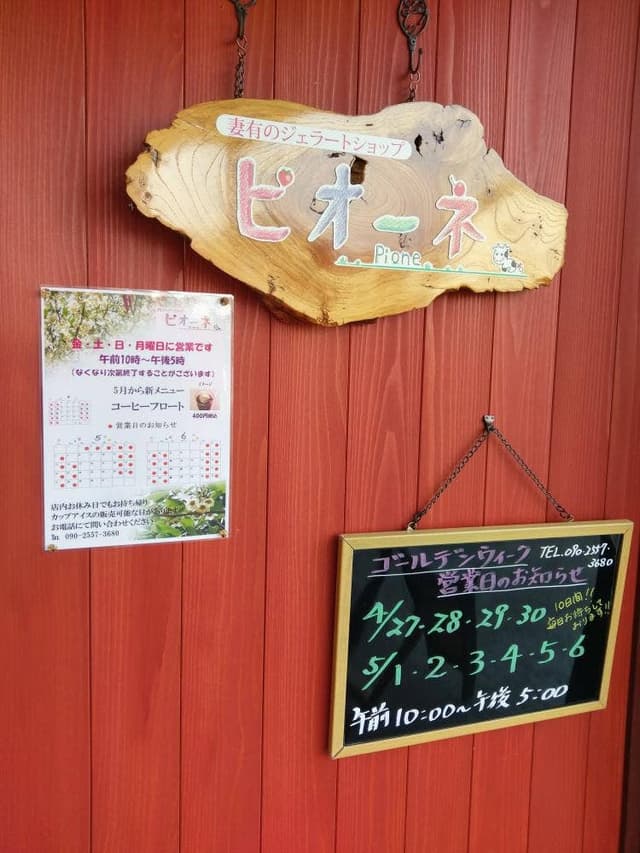 妻有のジェラートショップ
ピオーネ
Pione
ピオーネ
金・土・日・月曜日に営業です
午前10時～午後5時
（なくなり次第終了することがございます）
5月から新メニュー
コーヒーフロート
イメージ
400円税込
営業日のお知らせ
5
6
店内お休み日でもお持ち帰り
カップアイスの販売可能な日が
お電話にて問い合わせください
℡ 090-2557-3680
ゴールデンウィーク
TEL.090-2557-3680
営業日のお知らせ
4/27-28-29-30
10日間!!
毎日お待ちして
おります!!
5/1-2-3-4-5-6
午前10:00～午後5:00